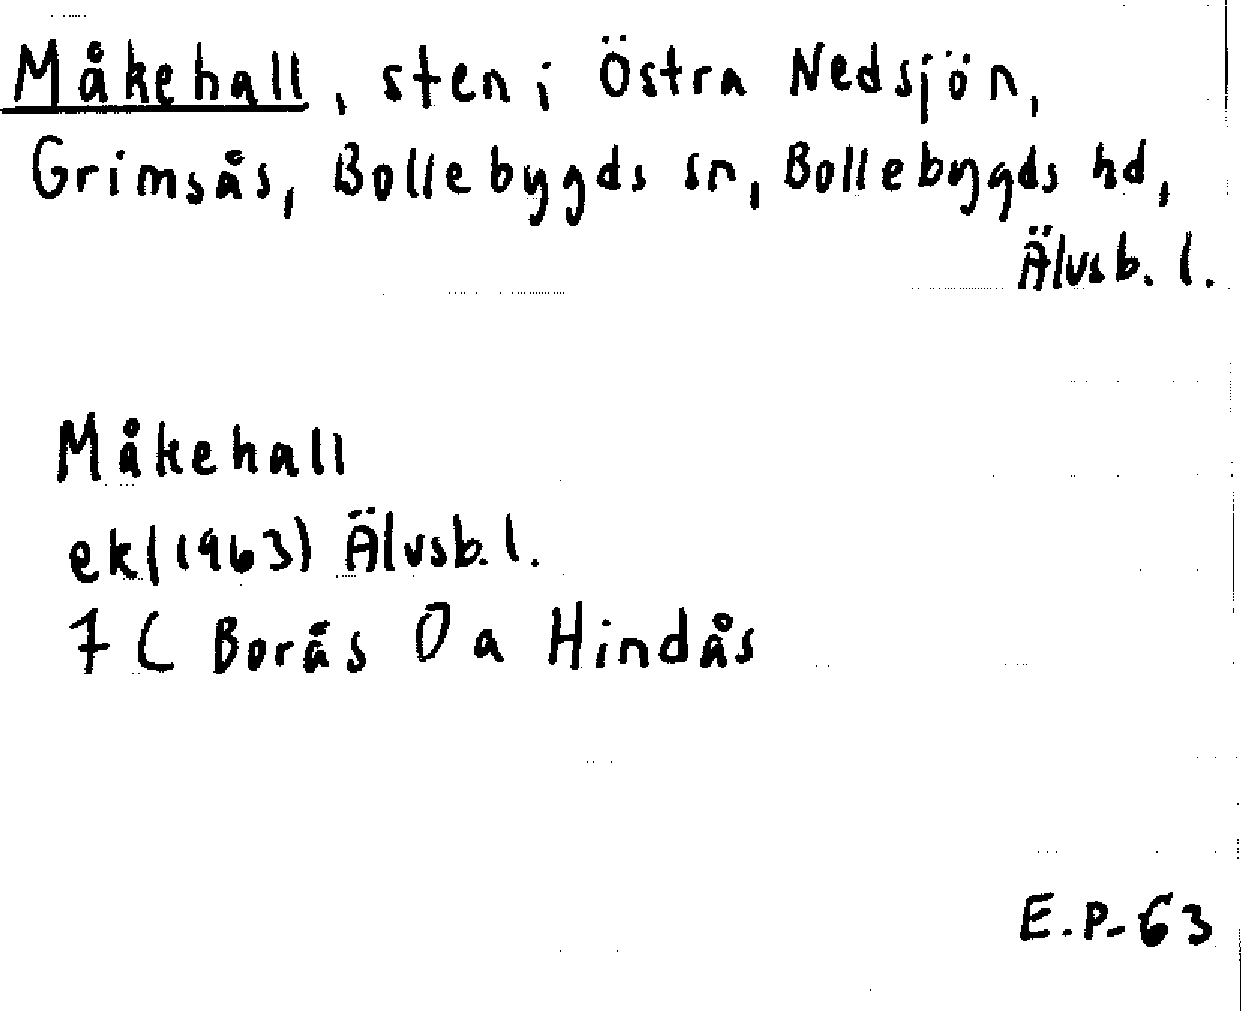 Måkehall, sten i Östra Nedsjön,
Grimsås, Bollebygds sn, Bollebygds hd,
Älvsb. l.
Måkehall
ek (1963) Älvsb. l.
7 C Borås 0 a Hindås
E.P-63